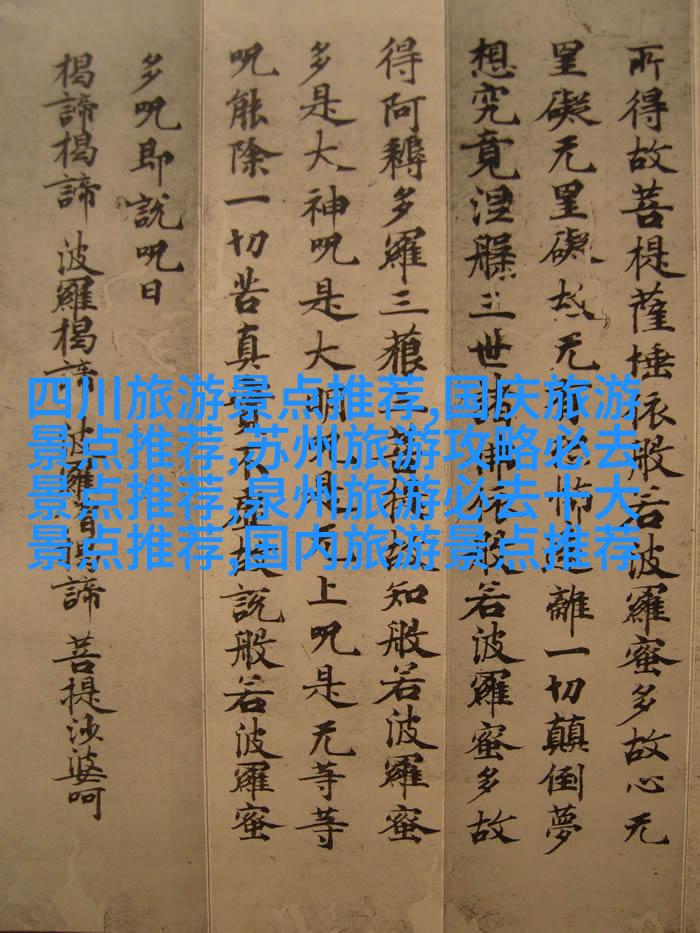 所得故菩提薩埵依般若波羅蜜多故心无
罣礙无罣礙故无有恐怖遠離一切顛倒夢
想究竟涅槃三世諸佛依般若波羅蜜多故
得阿耨多羅三藐三菩提故知般若波羅蜜
多是大神呪是大明呪是无上呪是无等等
呪能除一切苦真實不虛故說般若波羅蜜
多呪即說呪曰
揭諦揭諦 波羅揭諦 波羅僧揭諦 菩提沙婆呵
四川旅游景点推荐,国庆旅游
景点推荐,苏州旅游攻略必去
景点推荐,泉州旅游必去十大
景点推荐,国内旅游景点推荐